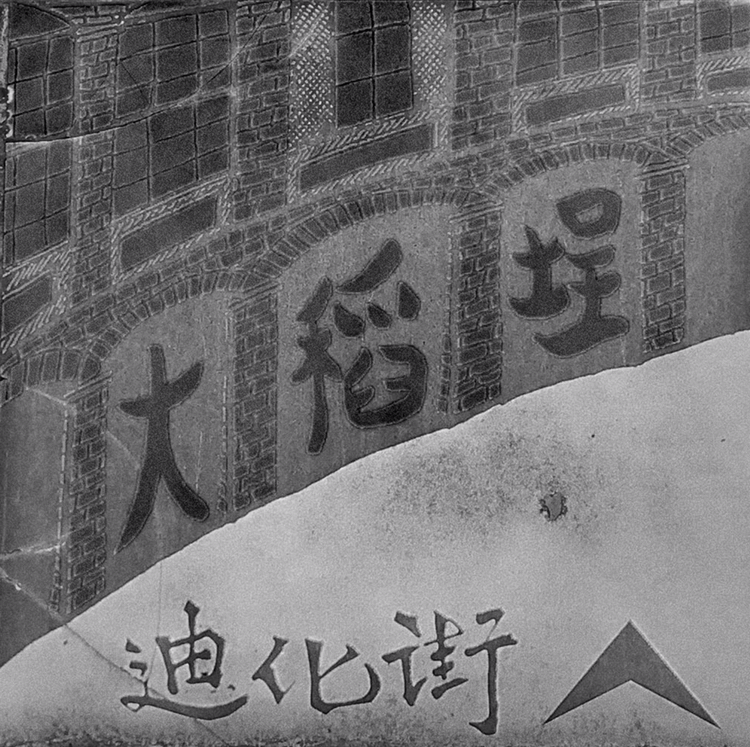 大稻埕
迪化街